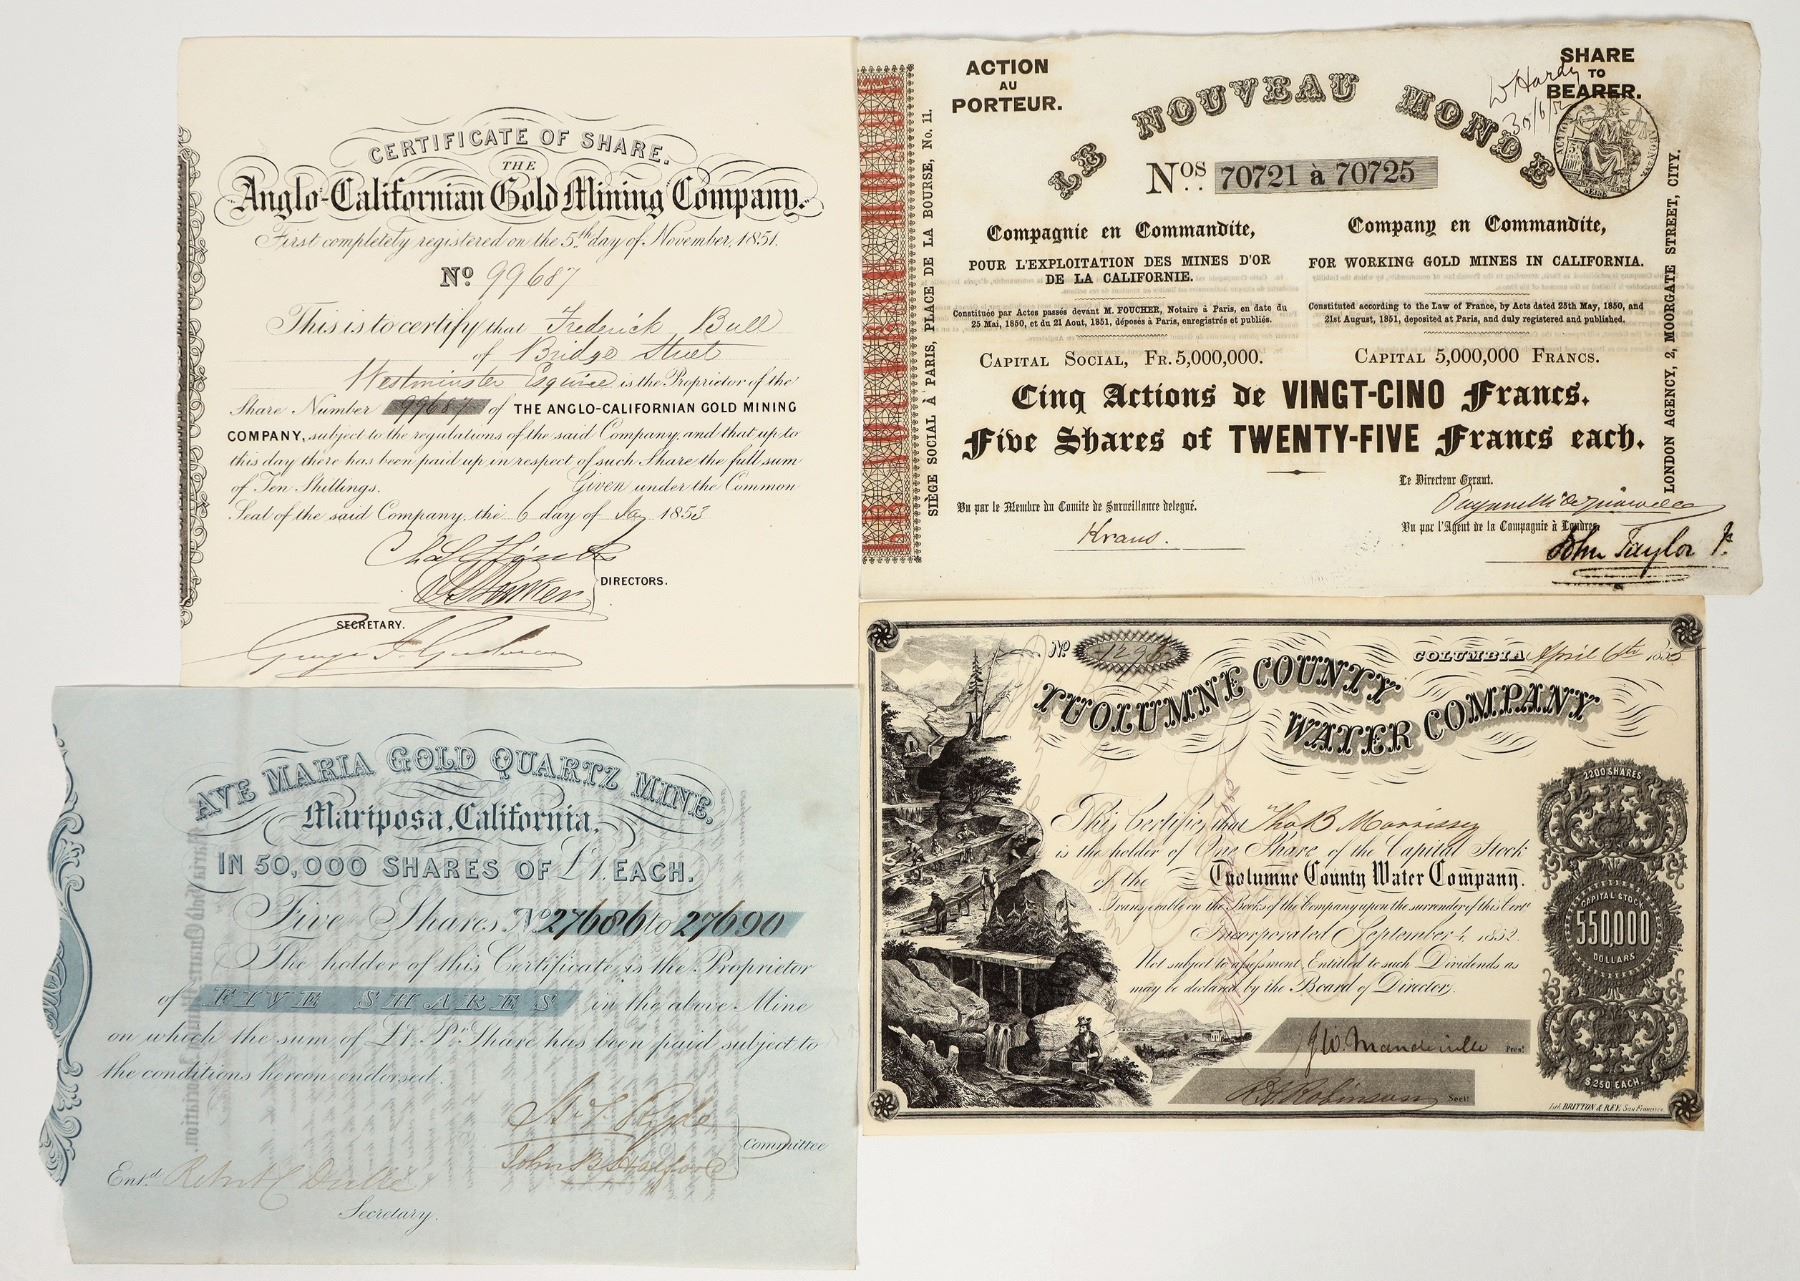 CERTIFICATE OF SHARE.
THE
Anglo-Californian Gold Mining Company.
First completely registered on the 5th day of November, 1851.
No 99687
This is to certify that Frederick Bull
of Bridge Street
Westminster Esquire is the Proprietor of the
Share Number 99687 of THE ANGLO-CALIFORNIAN GOLD MINING
COMPANY, subject to the regulations of the said Company, and that up to
this day there has been paid up in respect of such Share the full sum
of Ten Shillings. Given under the Common
Seal of the said Company, the 6 day of 1853
DIRECTORS.
SECRETARY.
ACTION
AU
PORTEUR.
SHARE
TO
BEARER.
W Hardy
30/6/52
LE NOUVEAU MONDE
Nos. 70721 à 70725
Compagnie en Commandite,
POUR L'EXPLOITATION DES MINES D'OR
DE LA CALIFORNIE.
Constituée par Actes passés devant M. FOUCHER, Notaire à Paris, en date du
25 Mai, 1850, et du 21 Aout, 1851, déposés à Paris, enregistrés et publiés.
CAPITAL SOCIAL, FR. 5,000,000.
Company en Commandite,
FOR WORKING GOLD MINES IN CALIFORNIA.
Constituted according to the Law of France, by Acts dated 25th May, 1850, and
21st August, 1851, deposited at Paris, and duly registered and published.
CAPITAL 5,000,000 FRANCS.
Cinq Actions de VINGT-CINQ Francs.
Five Shares of TWENTY-FIVE Francs each.
Le Directeur Gerant.
Vu par le Membre du Comite de Surveillance delegué.
Kraus.
Vu par l'Agent de la Compagnie à Londres.
John Taylor Jr
SIÈGE SOCIAL À PARIS, PLACE DE LA BOURSE, No. 11.
LONDON AGENCY, 2, MOORGATE STREET, CITY.
AVE MARIA GOLD QUARTZ MINE,
Mariposa, California,
IN 50,000 SHARES OF £1. EACH.
Five Shares, No 27686 to 27690
The holder of this Certificate, is the Proprietor
of FIVE SHARES in the above Mine
on which the sum of £1 Pr Share has been paid subject to
the conditions hereon endorsed.
Committee
Entd.
Secretary.
No 1296
COLUMBIA April 6th 1855
TUOLUMNE COUNTY
WATER COMPANY
This Certifies that Thos B Morrissey
is the holder of One Share of the Capital Stock
of the Tuolumne County Water Company.
Transferable on the Books of the Company upon the surrender of this Certe
Incorporated September 4, 1852.
Not subject to assessment. Entitled to such Dividends as
may be declared by the Board of Directors.
J W. Mandeville Prest
R H Robinson Sect
2200 SHARES
CAPITAL STOCK
550,000
DOLLARS
$250 EACH.
Lith. BRITTON & REY, San Francisco.